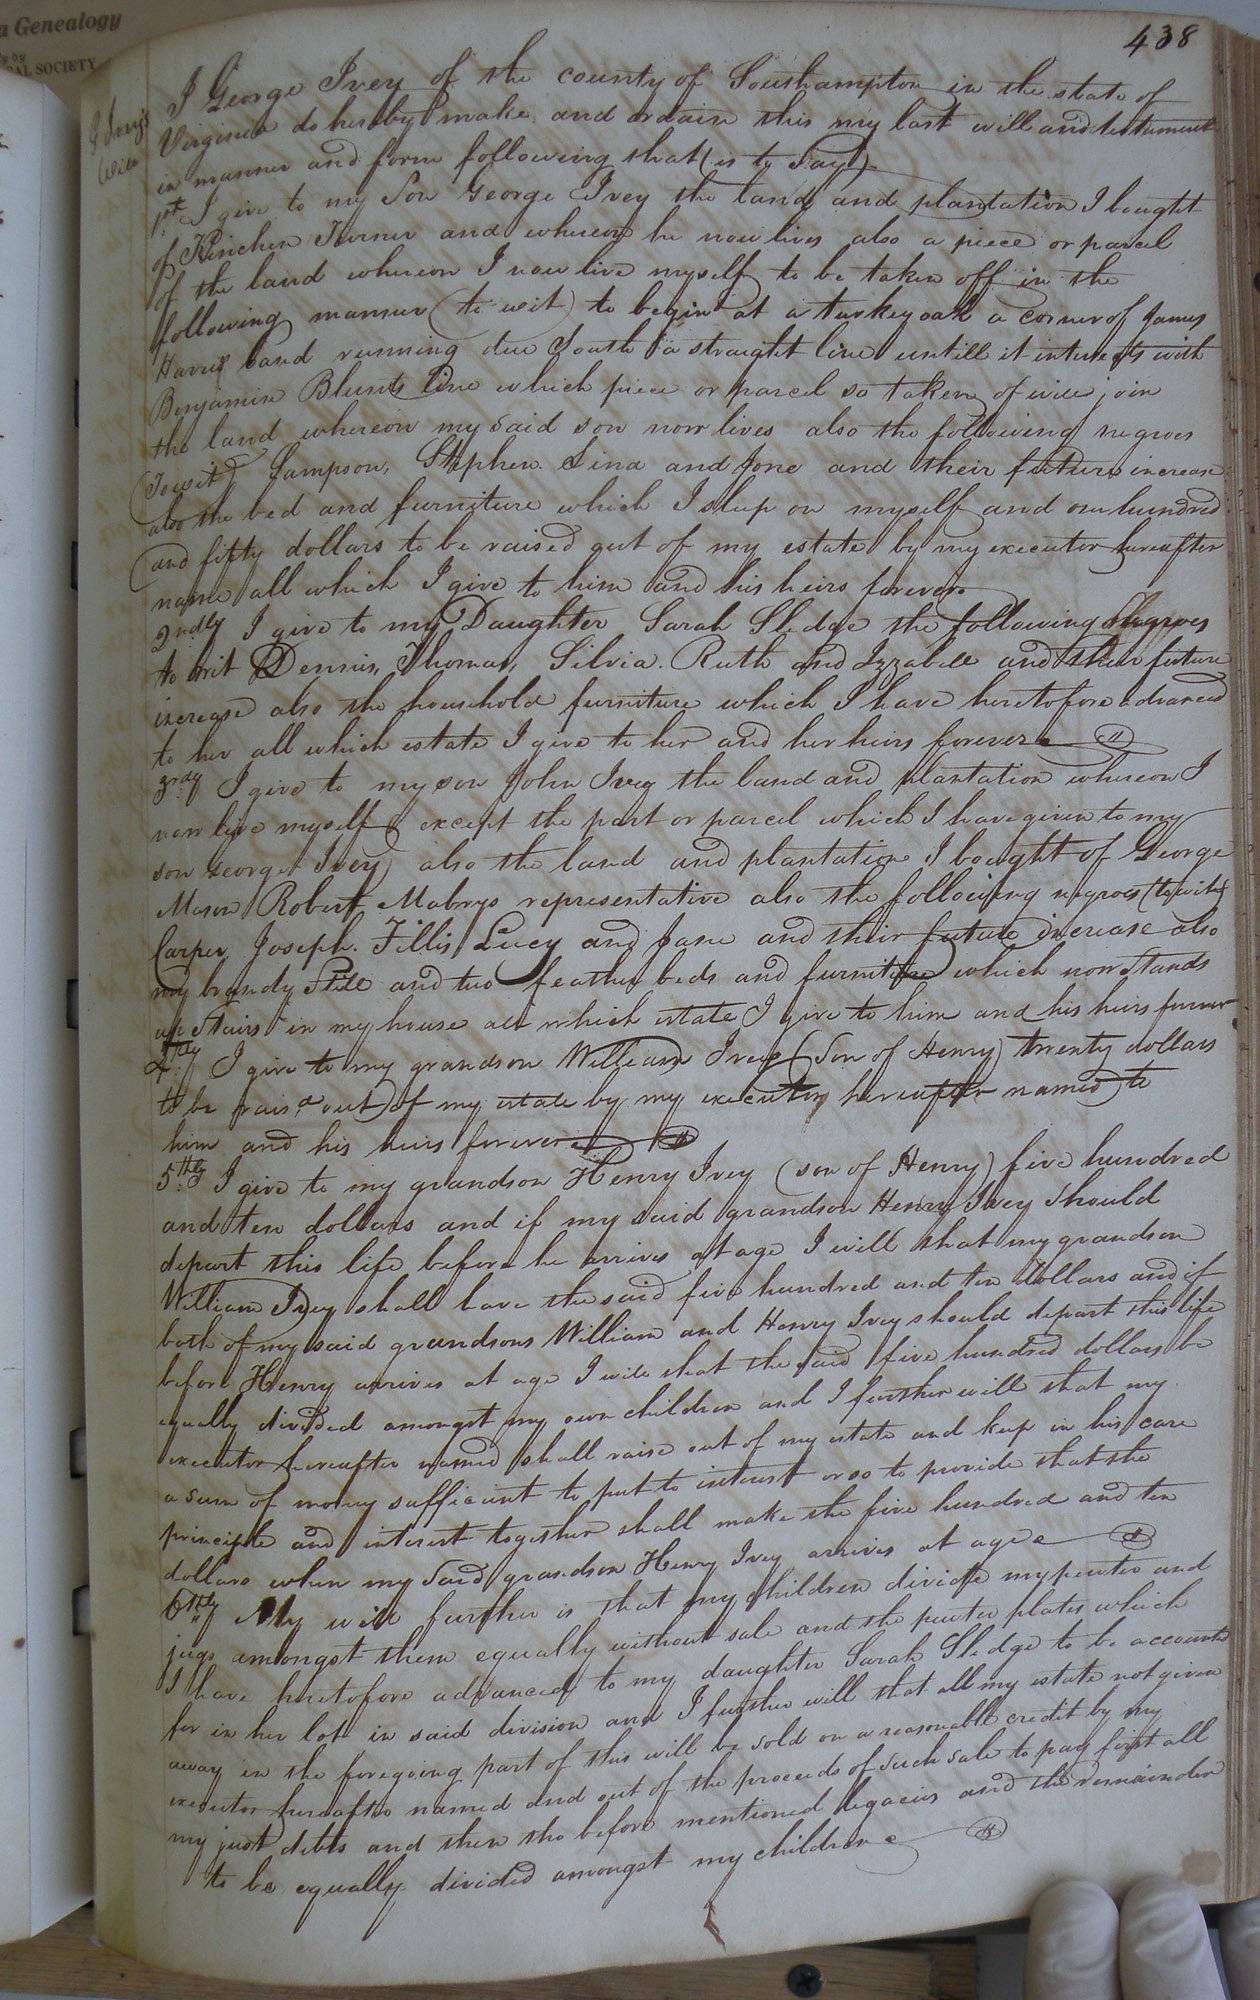 a Genealogy
by
AL SOCIETY
438
G Ivey's
Will
I George Ivey of the county of Southampton in the state of
Virginia do hereby make and ordain this my last will and testament
in manner and form following that (is to say)
1st I give to my Son George Ivey the land and plantation I bought
of Kinchen Turner and whereon he now lives also a piece or parcel
of the land whereon I now live myself to be taken off in the
following manner (to wit) to begin at a turkey oak a corner of James
Harris land running due South a straight line untill it intersects with
Benjamin Blunts line which piece or parcel so taken of will join
the land whereon my said son now lives also the following negroes
(Towit) Sampson, Stephen. Sina and Jone and their future increase
also the bed and furniture which I sleep on myself and one hundred
and fifty dollars to be raised out of my estate by my executor hereafter
name all which I give to him and his heirs forever
2ndly I give to my Daughter Sarah Sledge the following Negroes
to wit Dennis, Thomas, Silvia. Ruth and Izzabell and their future
increase also the household furniture which I have heretofore advanced
to her all which estate I give to her and her heirs forever
3rdly I give to my son John Ivey the land and plantation whereon I
now live myself except the part or parcel which I have given to my
son George Ivey also the land and plantation I bought of George
Mason Robert Mabrys representative also the following negroes (to wit)
Carper, Joseph. Fillis, Lucy and Jane and their future increase also
my brandy Still and two feather beds and furniture which now Stands
up Stairs in my house all which estate I give to him and his heirs forever
4thly I give to my grandson William Ivey (Son of Henry) twenty dollars
to be raisd out of my estate by my executor hereafter named to
him and his heirs forever
5thly I give to my grandson Henry Ivey (son of Henry) five hundred
and ten dollars and if my said grandson Henry Ivey Should
depart this life before he arrives at age I will that my grandson
William Ivey shall have the said five hundred and ten dollars and if
both of my said grandsons William and Henry Ivey should depart this life
before Henry arrives at age I will that the said five hundred dollars be
equally divided amongst my own children and I further will that my
executor hereafter named shall raise out of my estate and keep in his care
a sum of money sufficient to put to interest or so to provide that the
principle and interest together shall make the five hundred and ten
dollars when my Said grandson Henry Ivey arrives at age
6thly My will further is that my children divide my pewter and
jugs amongst them equally without sale and the pewter plates which
I have heretofore advanced to my daughter Sarah Sledge to be accounted
for in her lot in said division and I further will that all my estate not given
away in the foregoing part of this will be sold on a reasonable credit by my
executor hereafter named and out of the proceeds of such sale to pay first all
my just debts and then the before mentioned legacies and the remainder
to be equally divided amongst my children